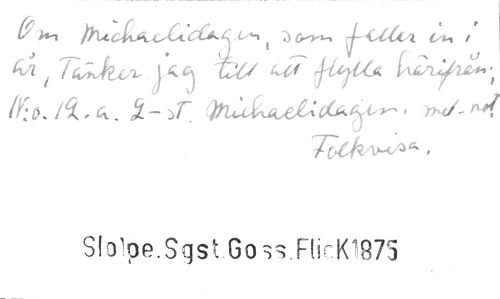 Om Michaelidagen, som faller in i
år, Tänker jag till att flytta härifrån;
N:o. 12. a. 2-st. Michaelidagen. med not.
Folkvisa.
Slolpe.Sgst.Goss.FlicK1875